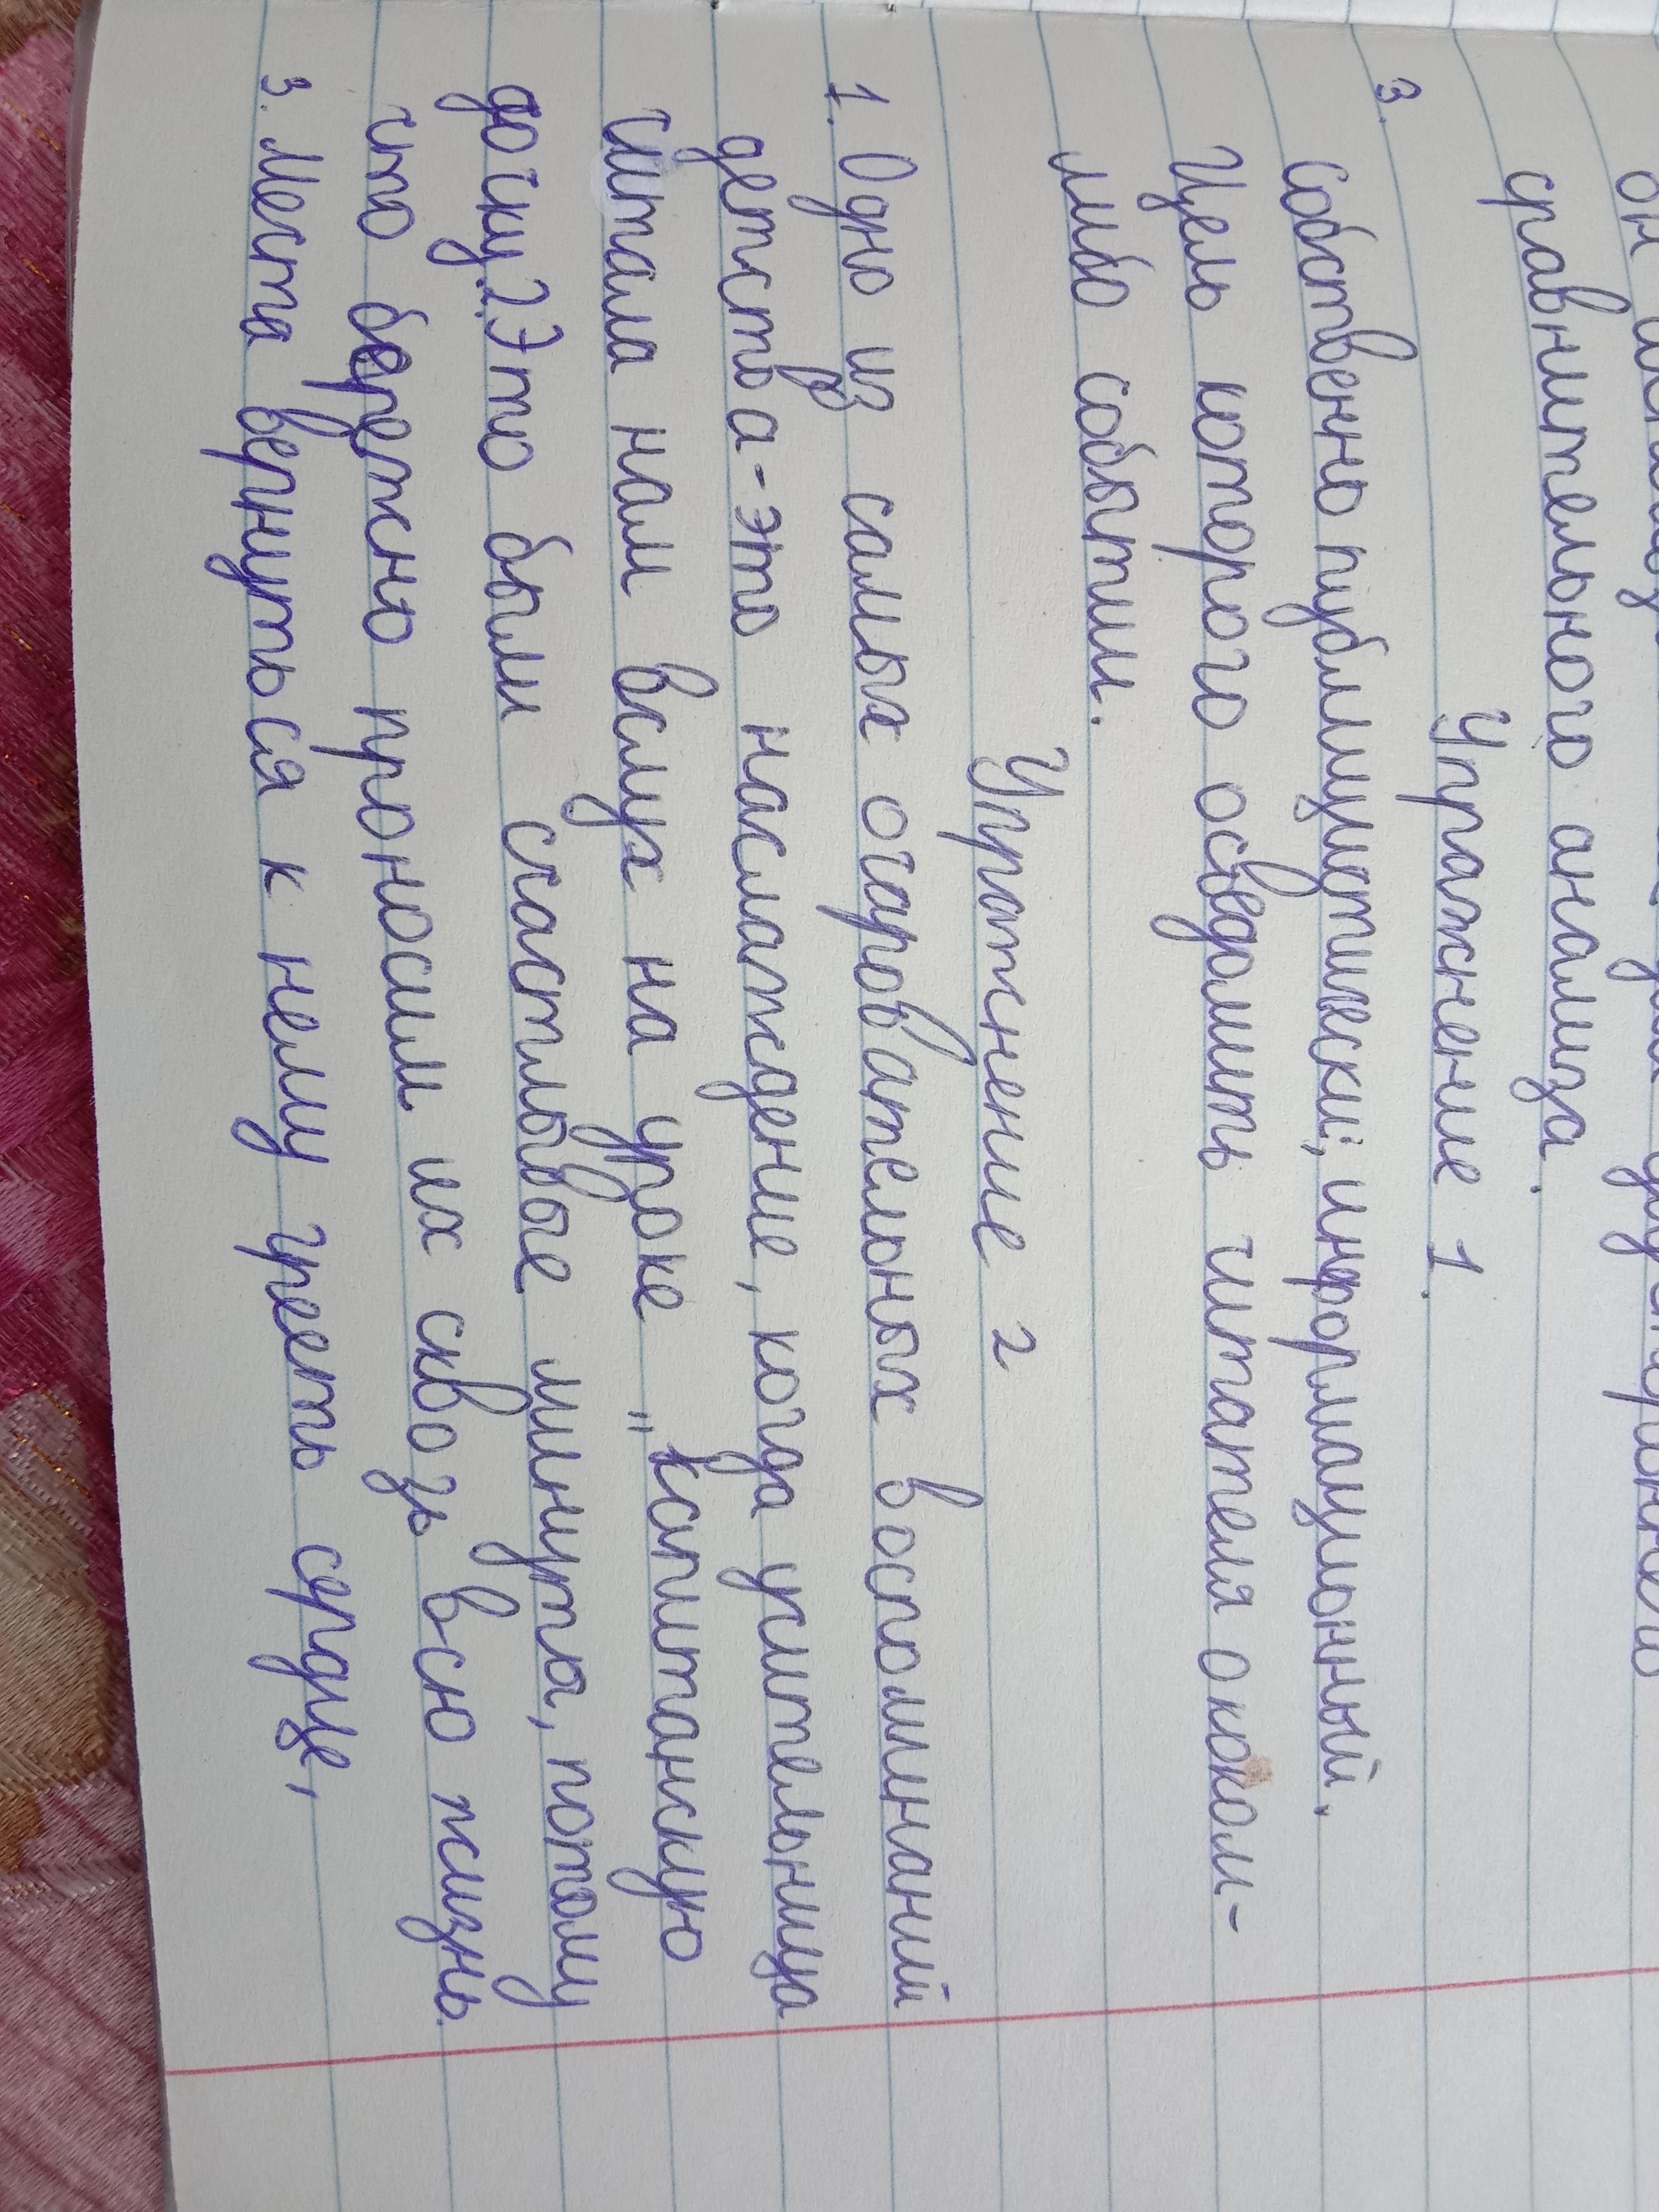 сравнительного анализа.
Упражнение 1.
3.
собственно публицистический, информационный.
Цель которого осведомить читателя о каком-
либо событии.
Упражнение 2
1. Одно из самых очаровательных воспоминаний
детства-это наслаждение, когда учительница
читала нам вслух на уроке "Капитанскую
дочку". 2. Это были счастливые минуты, потому
что бережно проносим их сквозь всю жизнь.
3. Места вернуться к нему греть сердце,